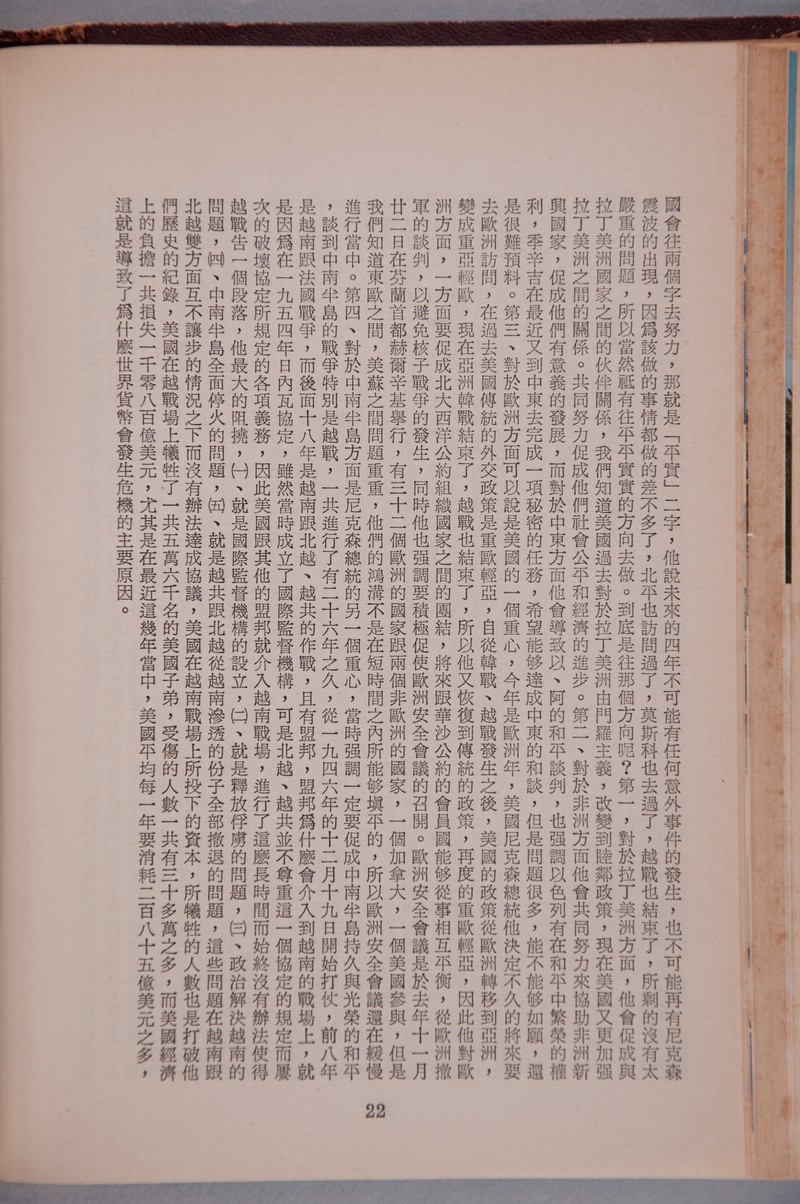 國會往兩個字去努力，那就是「平實」二字，他說未來的四年不可能有任何意外事件的發生，也不可能再有尼克森
震波的出現，因爲該做的事情都做的差不多了，北平也訪問過了，莫斯科也去過了，越戰也結束了，所剩的沒有太
嚴重的問題，所以當然祗有往平平實實的方向去做。到底是往那個方向呢？第一，對於拉丁美洲方面，他會促成與
拉丁美洲國家之間的伙伴關係，我們知道美國過去對於拉丁美洲由門羅主義，改變到睦鄰政策，現在美國又更加强
拉丁美洲之間的關係。共同努力促成他們社會公平和經濟的進步。第二、對於非洲方面他會共同努力來協助非洲新
興國家，促成他們有意義的發展，而對於中東方面他會導致以、阿的和平談判，也强調以色列有在和平中繁榮的權
利，季辛吉在最近又到中東去完成一項秘密的任務，希望能够達成中東的和談，但是問題很多，能不能够如願，還
是很難預料。第三、對於歐洲方面可以說是美國的一個重心，今年是歐洲年，美國尼克森總統他決定不久的將來要
去歐洲訪問，在過去美國傳統的外交政策是重歐輕亞，自從韓戰、越戰發生之後，美國的政策從歐洲轉移到亞洲，
變成重亞輕歐，現在亞洲韓戰結束了，越戰也結束了，所以他又恢復到傳統的政策，再度的重歐輕亞，因此他對歐
洲方面，一方面要促成北大西洋公約組織國家之間的團結，將來跟華沙公約的會員國能够從事相互平衡，從歐洲撤
軍的談判，以避免核子戰爭的發生，同時他也强調要積極促使歐洲安全會議的召開。歐洲安全會議是於去年十一月
廿二日在芬蘭首都赫爾辛基舉行，有三十二個歐洲的國家跟兩個非歐洲的國家，一個加拿大，一個美國參與，但是
我們知道東歐之間，美蘇之間問題重重，他們的鴻溝不是在短時間之內所能够塡平的，所以歐洲安全會議還在緩慢
進行當中。第四、對於中南半島方面是尼克森總統的另一個重心，當時强調一定要促成中南半島持久與光榮的和平
，談到中南半島的戰爭特別是越戰，一共進行了有二十六年之久，從一九四六年的十二月十九日開始打仗，前八年
是越南跟法國戰爭，而後面十八年是越南跟北越、越共的作戰，且有盟邦，盟邦爲什麼會介入到越南的戰場上，就
是因爲在一九五四年日內瓦協定，雖然當時成立了國際監督機構，可是北越、越共並不尊重這一個協定的規定而屢
次的破壞協定所規定的各項義務，因此美國跟其他的盟邦就介入越南戰場，進行了這麼長時間而始終沒有辦法使得
越戰吿一個段落，他最大的阻撓，㈠、就是國際監督機構的設立，㈡、就是釋放俘虜的問題，㈢、政治解決越南的
問題，㈣、中南半島全面停火的問題，㈤、就是越共跟北越從越南滲透的份子全部撤退的問題，這些問題在越南跟
北越雙方面互不讓步的情況之下而沒有辦法達成協議，美國在越南戰場上所投下的資本，所犧牲的人數也是打破他
們歷史的紀錄，美國在越戰場上犧牲了一共五萬六千名的美國子弟，受傷的人數一共有三十多萬之多，而美國經濟
上的負擔一共損失一千零八百億美元，尤其是在最近這幾年當中，美國平均每一年要消耗二百八十五億美元之多，
這就是導致了爲什麼世界貨幣會發生危機的主要原因。
22